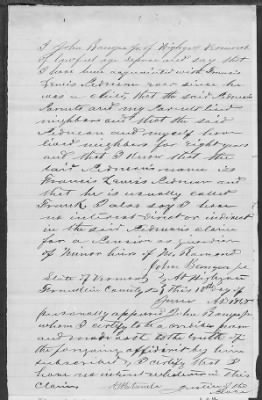 I John Bangar Jr of Highgate Vermont
of lawful age depose and say that
I have been acquainted with Francis
Lewis Pidmean ever since he
was a child, that the said Pidmean
Parents and my Parents lived
neighbors and that the said
Pidmean and myself have
lived neighbors for eight years
and that I know that the
said Pidmean's name is
Francis Lewis Pidmean and
that he is usually called
Frank I also say I have
no interest direct or indirect
in the said Pidmean's claim
for a Pension as guardian
of Minor heirs of
John Bangar Jr
State of Vermont At Highgate
Franklin County this 18th day of
June AD
personally appeared John Bangar Jr
whom I certify to be a credible person
and made oath to the truth of
the foregoing affidavit by him
subscribed & I certify that I
have no interest whatever in this
Claim
Justice of the
Peace